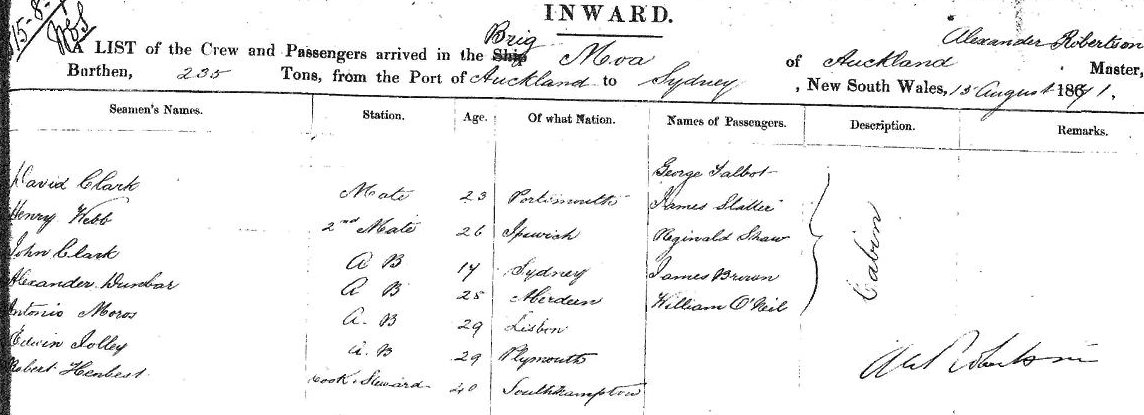 15-8-
INWARD.
A LIST of the Crew and Passengers arrived in the Ship Brig Moa of Auckland Alexander Robertson Master,
Burthen, 235 Tons, from the Port of Auckland to Sydney, New South Wales, 15 August 1871.
Seamen's Names. Station. Age. Of what Nation. Names of Passengers. Description. Remarks.
George Talbot
David Clark Mate 23 Portsmouth James Slatter
Henry Webb 2nd Mate 26 Ipswich Reginald Shaw
John Clark A B 17 Sydney James Brown
Alexander Dunbar A B 25 Aberdeen William O'Neil
Cabin
Antonio Moros A. B 29 Lisbon
Edwin Jolley A. B 29 Plymouth
Robert Henbest Cook & Steward 40 Southhampton
Alex Robertson